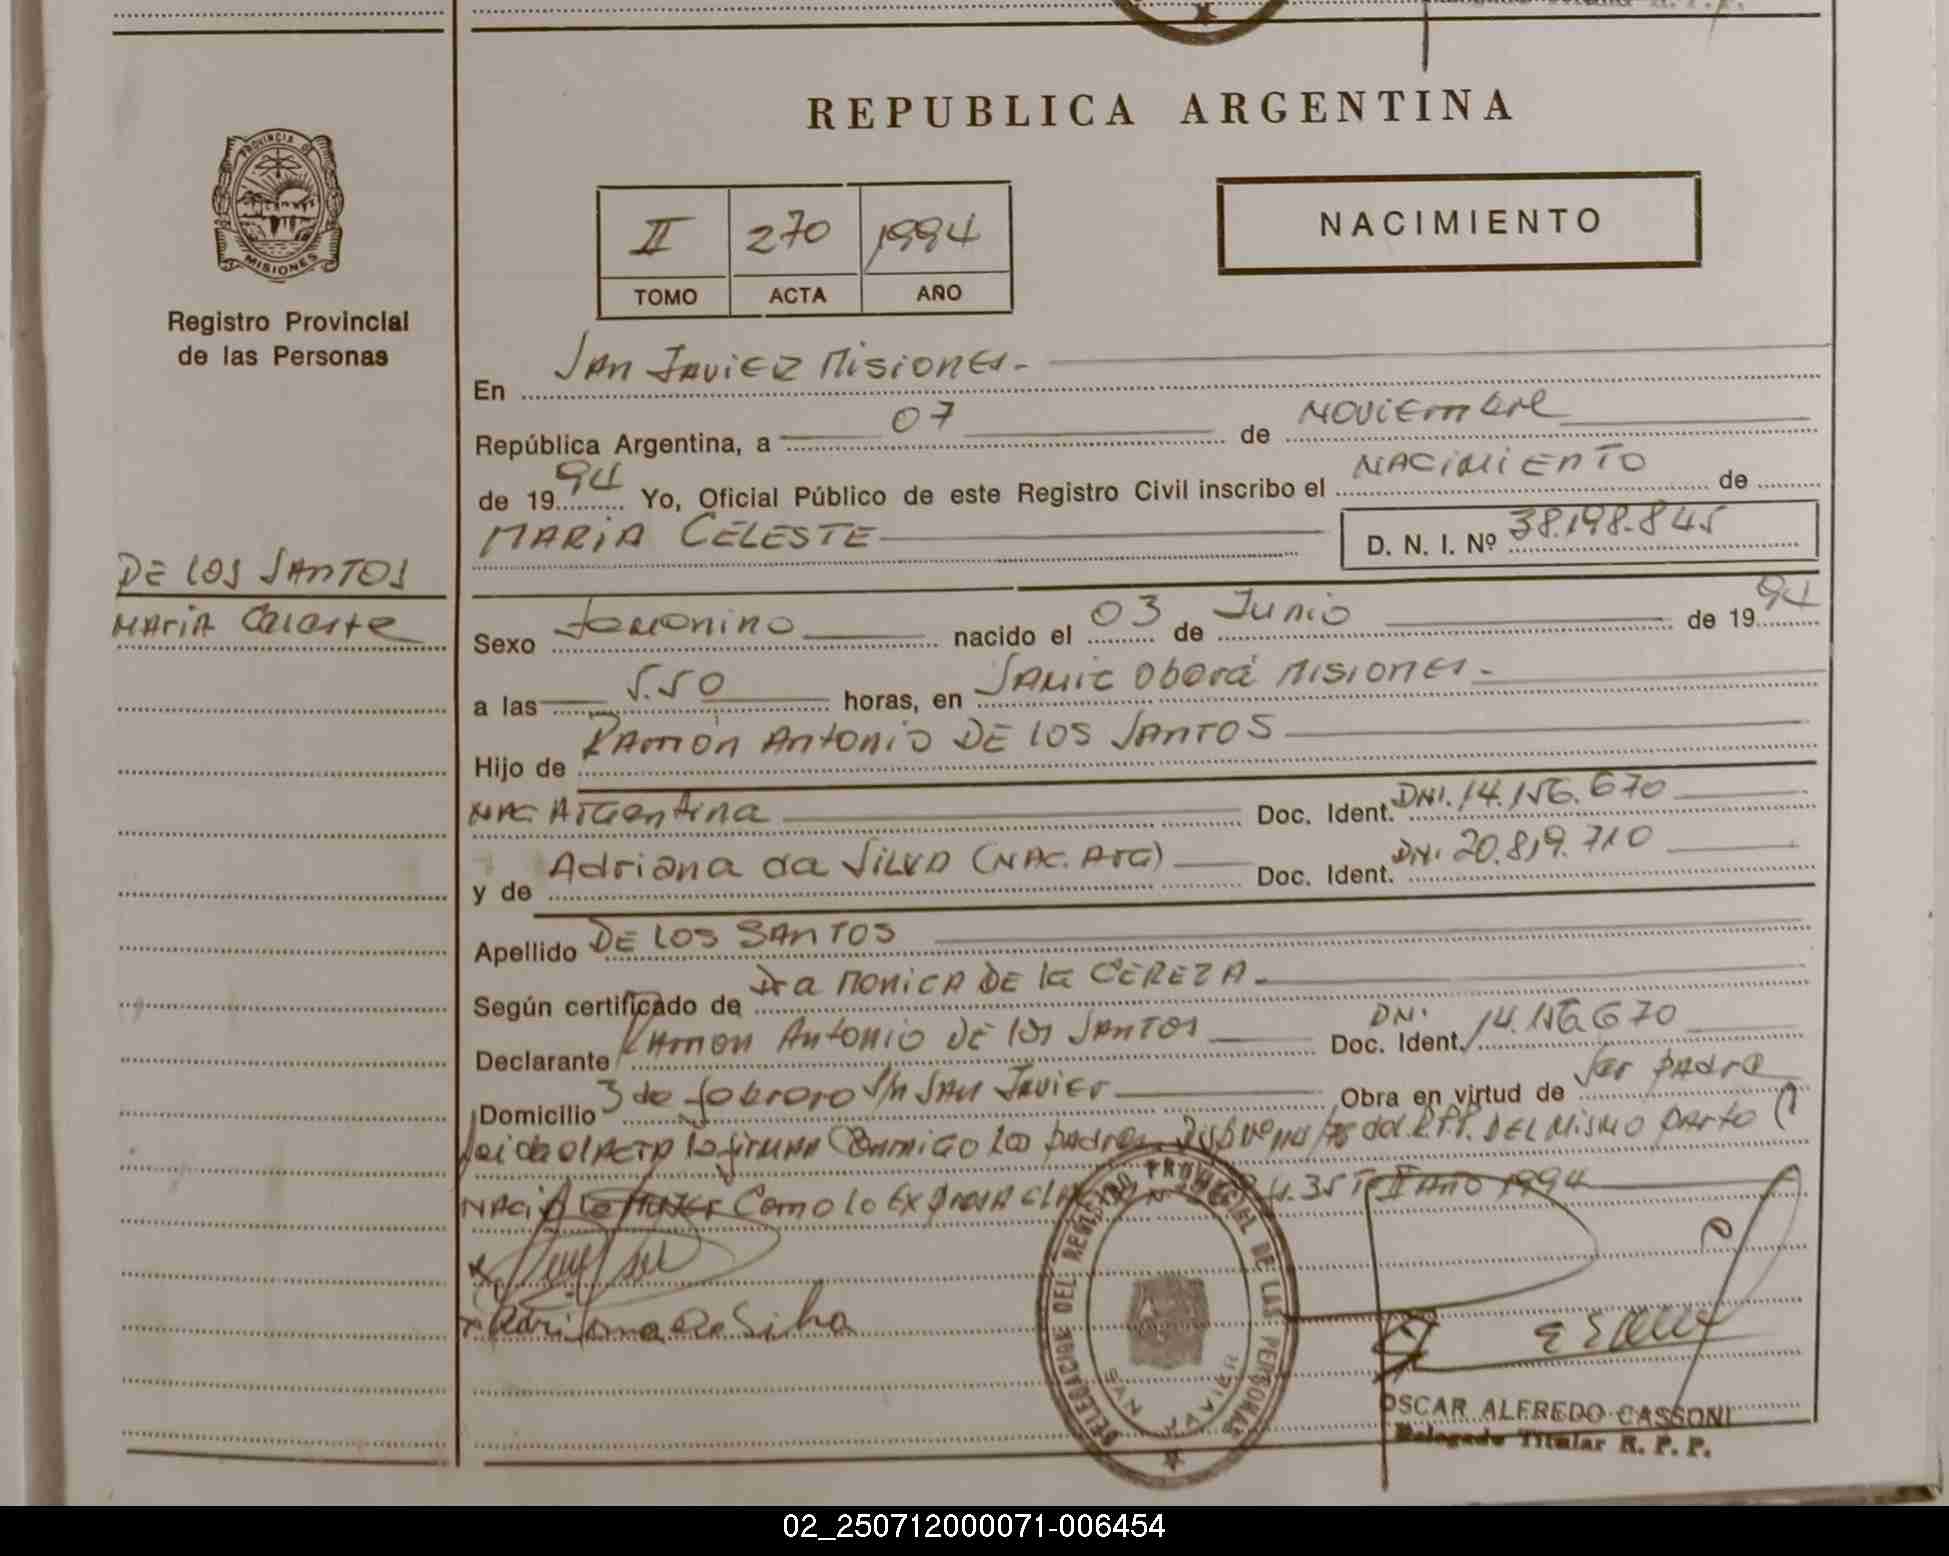 REPUBLICA ARGENTINA
PROVINCIA DE
MISIONES
Registro Provincial
de las Personas
II 270 1994
TOMO ACTA AÑO
NACIMIENTO
En San Javier Misiones.-
República Argentina, a 07 de Noviembre
de 1994 Yo, Oficial Público de este Registro Civil inscribo el NACIMIENTO de
MARIA CELESTE D. N. I. Nº 38.198.845
DE LOS SANTOS
MARIA Celeste
Sexo femenino nacido el 03 de Junio de 1994
a las 5.50 horas, en SAMIC Oberá Misiones.-
Hijo de Ramón Antonio DE LOS SANTOS
NAC. Argentina Doc. Ident. DNI. 14.156.670
y de Adriana da Silva (NAC. ARG) Doc. Ident. DNI 20.819.710
Apellido DE LOS SANTOS
Según certificado de Dra MONICA DE la CEREZA.
Declarante Ramon Antonio DE los SANTOS Doc. Ident. DNI 14.156.670
Domicilio 3 de febrero S/n San Javier Obra en virtud de ser padre
leida el ACTA la firman Conmigo los padres del R.P.P. DEL Mismo parto
NACió Como lo Expresa el T II Año 1994
Adriana da Silva
DELEGACION DEL REGISTRO PROVINCIAL DE LAS PERSONAS
SAN JAVIER
OSCAR ALFREDO CASSONI
Delegado Titular R. P. P.
02_250712000071-006454